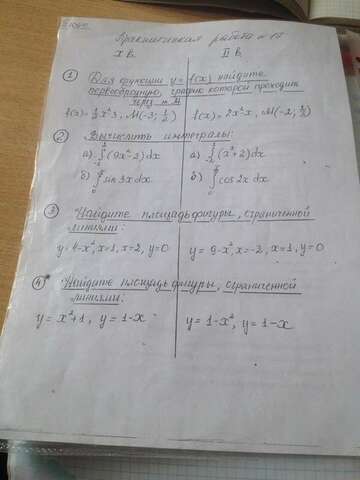 Практическая работа №17
I в. II в.
① Для функции y = f(x) найдите
первообразную, график которой проходит
через т. М
f(x) = x², М(-3; 1/2) f(x) = 2x² x, М(-2; 1/2)
② Вычислить интегралы:
а) ∫(9x²-2)dx а) ∫(x²+2)dx
б) ∫ sin 3x dx б) ∫ cos 2x dx
③ Найдите площадь фигуры, ограниченной
линиями:
y = 4-x², x=1, x=2, y=0 y = 9-x², x=-2, x=1, y=0
④* Найдите площадь фигуры, ограниченной
линиями:
y = x²+1, y = 1-x y = 1-x², y = 1-x